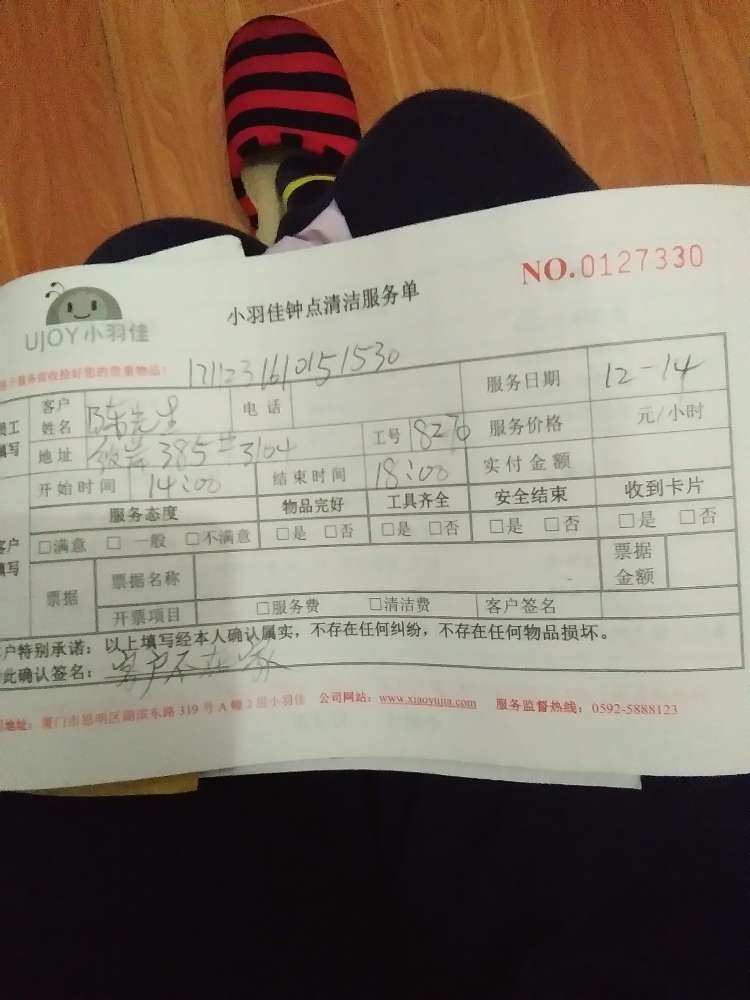 NO.0127330
UJOY小羽佳
小羽佳钟点清洁服务单
服务前请收捡好您的贵重物品!
1211231610151530
员工填写 客户姓名 陈先生 电话 服务日期 12-14
地址 385 3104 工号 8276 服务价格 元/小时
开始时间 14:00 结束时间 18:00 实付金额
客户填写 服务态度 物品完好 工具齐全 安全结束 收到卡片
□满意 □一般 □不满意 □是 □否 □是 □否 □是 □否 □是 □否
票据 票据名称 票据金额
开票项目 □服务费 □清洁费 客户签名
户特别承诺:以上填写经本人确认属实,不存在任何纠纷,不存在任何物品损坏。
此确认签名:客户不在家
地址:厦门市思明区湖滨东路319号A幢2层小羽佳 公司网站:www.xiaoyujia.com 服务监督热线:0592-5888123